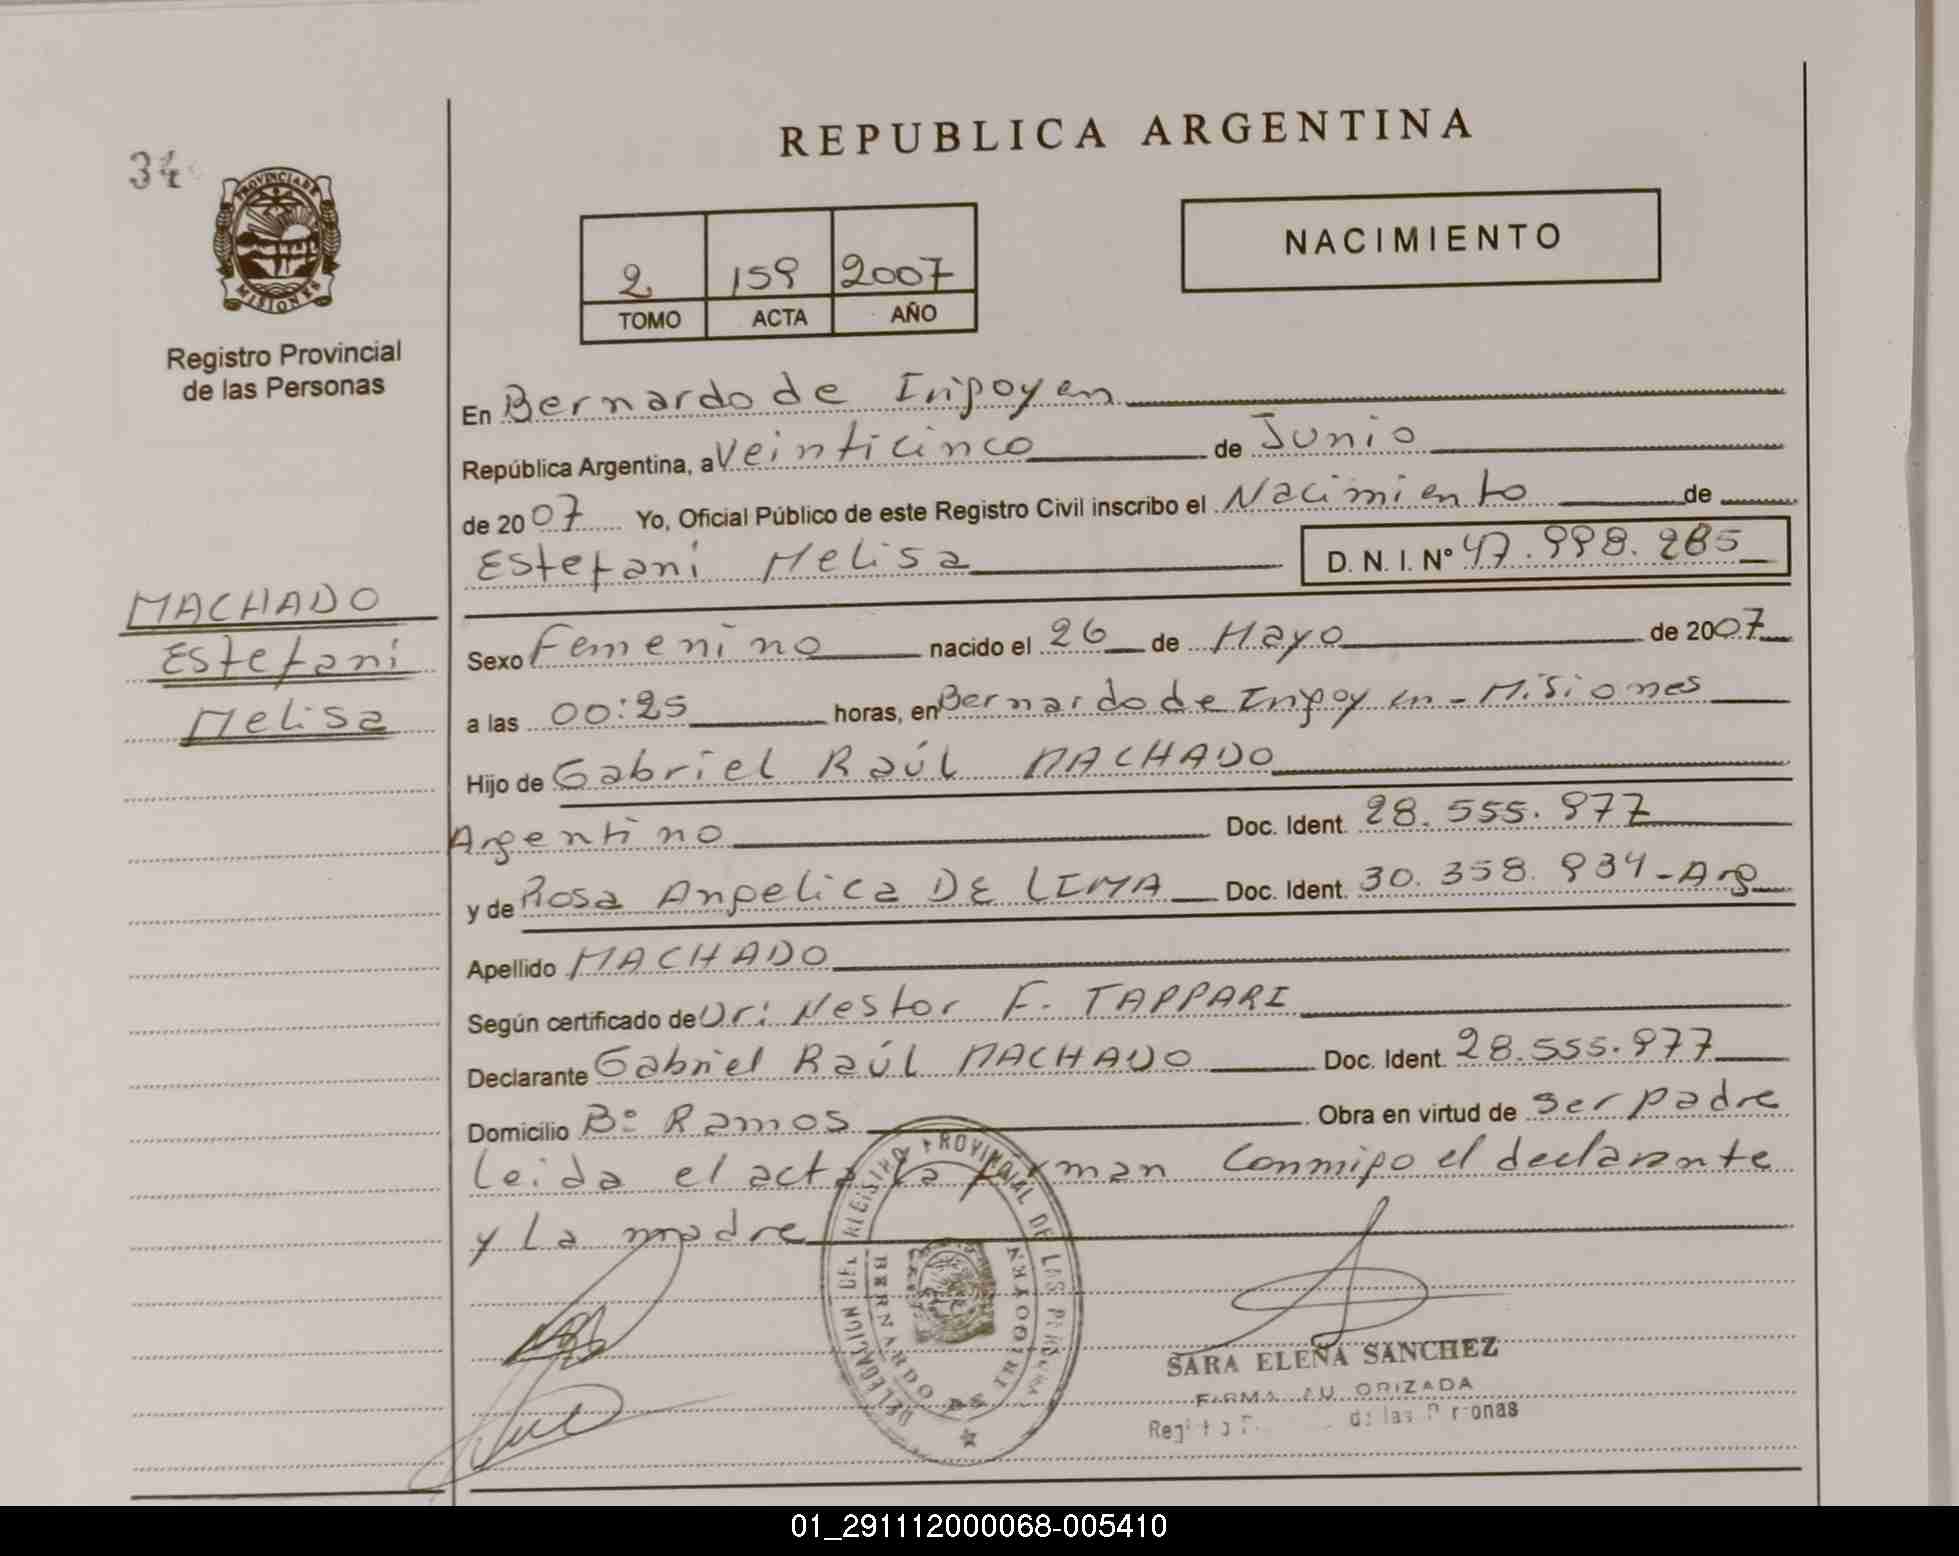 REPUBLICA ARGENTINA
34
PROVINCIA DE
MISIONES
NACIMIENTO
2 159 2007
TOMO ACTA AÑO
Registro Provincial
de las Personas
En Bernardo de Irigoyen
República Argentina, a Veinticinco de Junio
de 2007 Yo, Oficial Público de este Registro Civil inscribo el Nacimiento de
Estefani Melisa D. N. I. Nº 47.998.285
MACHADO
Estefani
Melisa
Sexo Femenino nacido el 26 de Mayo de 2007
a las 00:25 horas, en Bernardo de Irigoyen - Misiones
Hijo de Gabriel Raúl MACHADO
Argentino Doc. Ident. 28.555.977
y de Rosa Angelica DE LIMA Doc. Ident. 30.358.934 - Arg
Apellido MACHADO
Según certificado de Dr: Nestor F. TAPPARI
Declarante Gabriel Raúl MACHADO Doc. Ident. 28.555.977
Domicilio Bº Ramos Obra en virtud de ser padre
Leida el acta la firman Conmigo el declarante
y La madre
DELEGACION DEL REGISTRO PROVINCIAL DE LAS PERSONAS
BERNARDO DE IRIGOYEN
SARA ELENA SANCHEZ
FIRMA AUTORIZADA
de las Personas
01_291112000068-005410